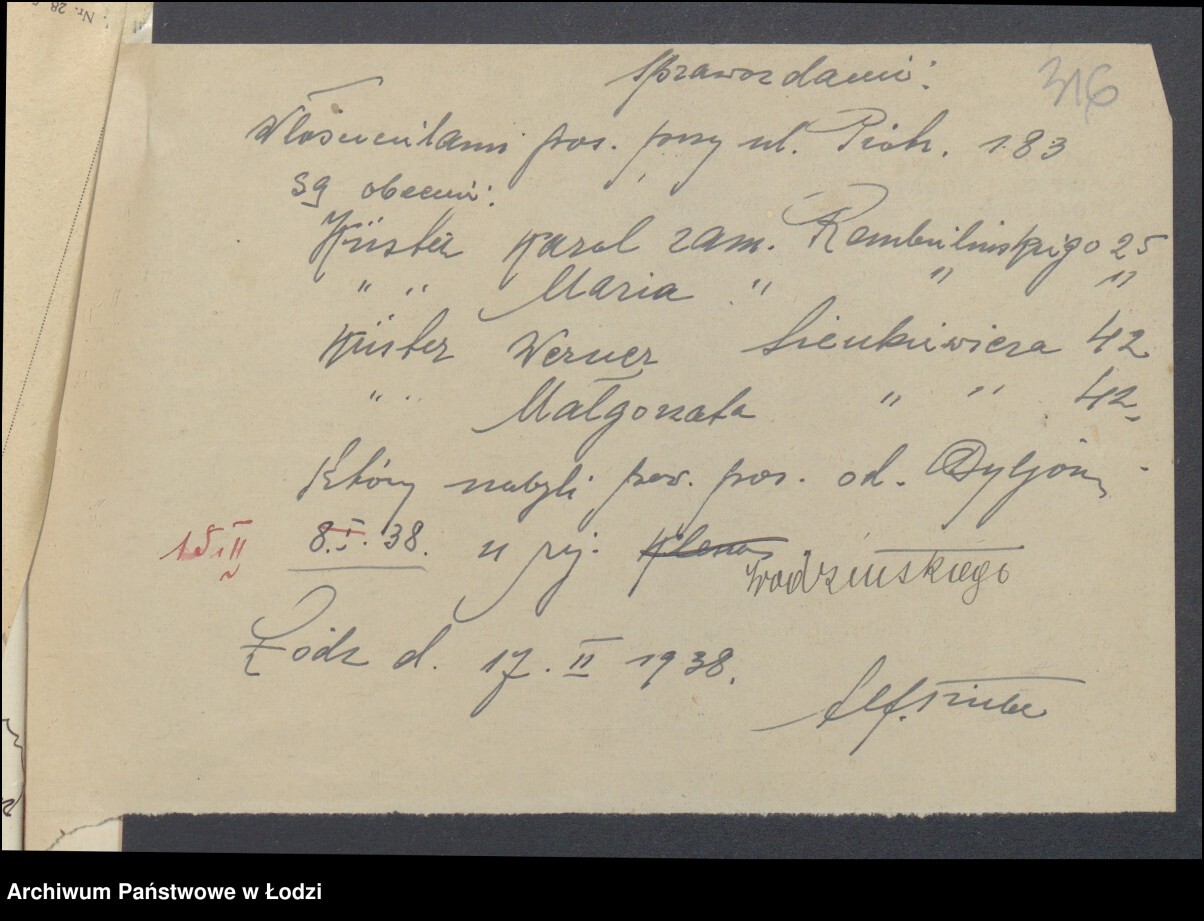 Nr. 28
Sprawozdanie: 316
Właścicielami pos. przy ul. Piotr. 183
są obecnie:
Küster Karol zam. Rembielińskiego 25
" " Maria " " "
Küster Werner Sienkiewicza 42
" " Małgorzata " " 42,
Którzy nabyli pow. pos. od
15.II 8.I.38. u rej.
Wodzińskiego
Łódz d. 17. II 1938.
Alf.
Archiwum Państwowe w Łodzi